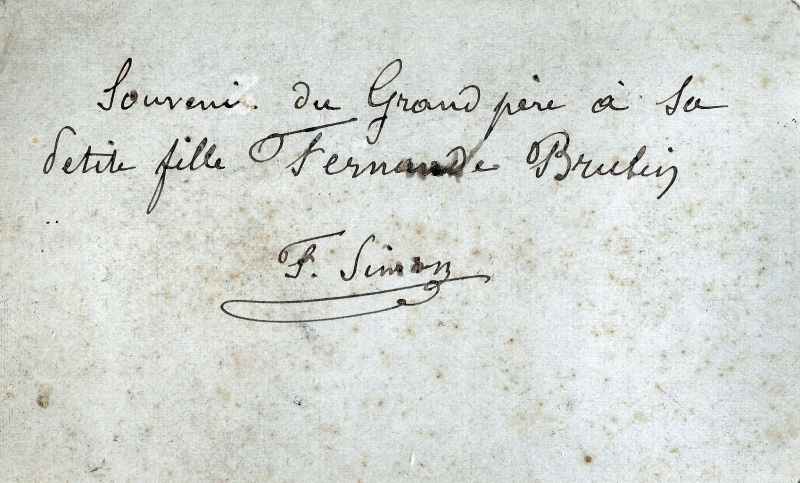 Souvenir du Grand père à sa
petite fille Fernande Brulin
F. Simon